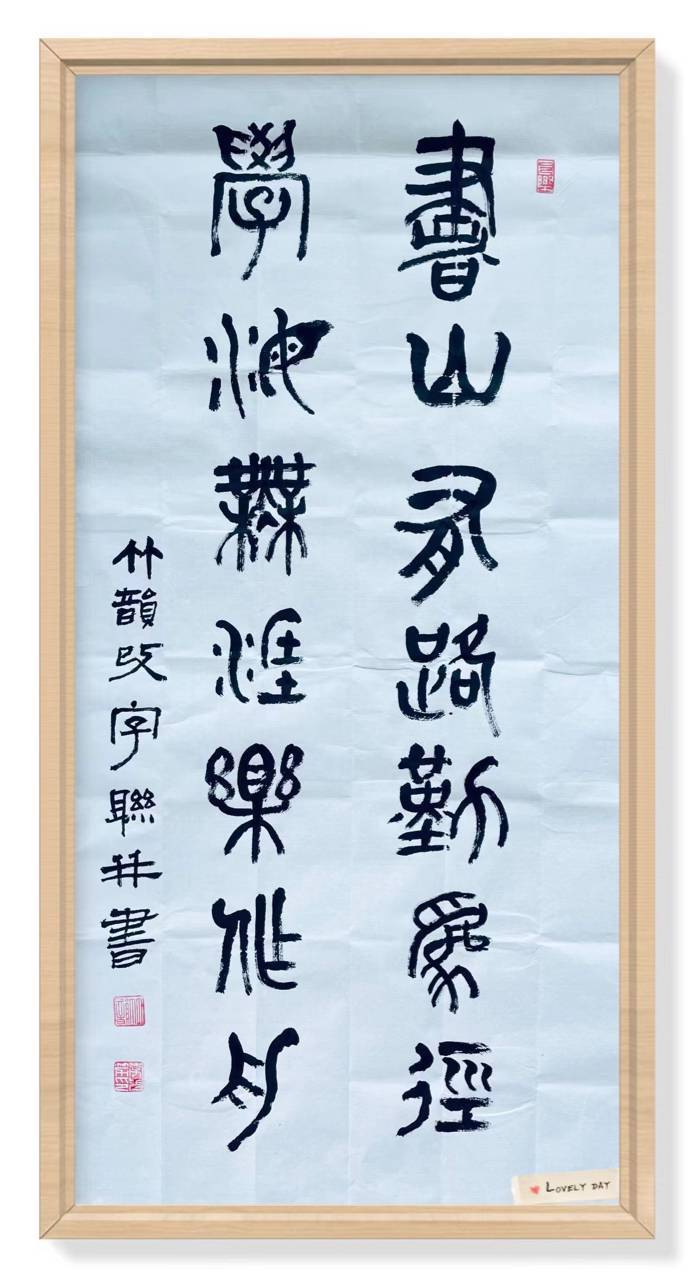 書山有路勤爲徑
學海無涯樂作舟
竹韻改字聯并書
LOVELY DAY